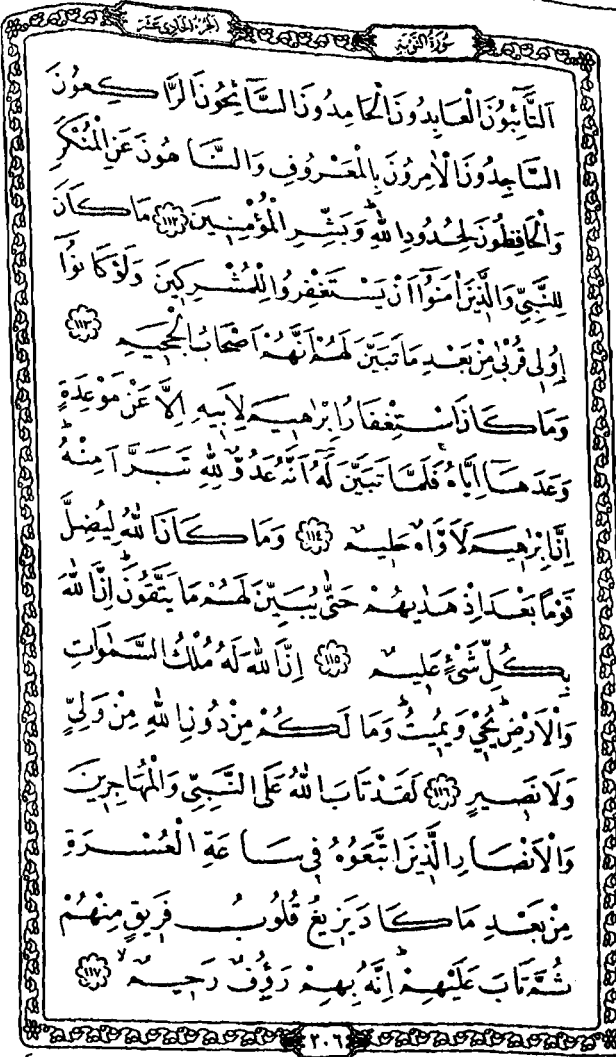 الجزء الحادي عشر
سورة التوبة
اَلتَّآئِبُونَ الْعَابِدُونَ الْحَامِدُونَ السَّآئِحُونَ الرَّاكِعُونَ
السَّاجِدُونَ الْاٰمِرُونَ بِالْمَعْرُوفِ وَالنَّاهُونَ عَنِ الْمُنْكَرِ
وَالْحَافِظُونَ لِحُدُودِ اللّٰهِ وَبَشِّرِ الْمُؤْمِنِينَ ﴿١١٢﴾ مَا كَانَ
لِلنَّبِيِّ وَالَّذِينَ اٰمَنُٓوا اَنْ يَسْتَغْفِرُوا لِلْمُشْرِكِينَ وَلَوْ كَانُٓوا
اُو۬لِي قُرْبٰى مِنْ بَعْدِ مَا تَبَيَّنَ لَهُمْ اَنَّهُمْ اَصْحَابُ الْجَحِيمِ ﴿١١٣﴾
وَمَا كَانَ اسْتِغْفَارُ اِبْرٰهِيمَ لِاَبِيهِ اِلَّا عَنْ مَوْعِدَةٍ
وَعَدَهَٓا اِيَّاهُ فَلَمَّا تَبَيَّنَ لَهُٓ اَنَّهُ عَدُوٌّ لِلّٰهِ تَبَرَّاَ مِنْهُ
اِنَّ اِبْرٰهِيمَ لَاَوَّاهٌ حَلِيمٌ ﴿١١٤﴾ وَمَا كَانَ اللّٰهُ لِيُضِلَّ
قَوْمًا بَعْدَ اِذْ هَدٰيهُمْ حَتّٰى يُبَيِّنَ لَهُمْ مَا يَتَّقُونَ اِنَّ اللّٰهَ
بِكُلِّ شَيْءٍ عَلِيمٌ ﴿١١٥﴾ اِنَّ اللّٰهَ لَهُ مُلْكُ السَّمٰوَاتِ
وَالْاَرْضِ يُحْيِ وَيُمِيتُ وَمَا لَكُمْ مِنْ دُونِ اللّٰهِ مِنْ وَلِيٍّ
وَلَا نَصِيرٍ ﴿١١٦﴾ لَقَدْ تَابَ اللّٰهُ عَلَى النَّبِيِّ وَالْمُهَاجِرِينَ
وَالْاَنْصَارِ الَّذِينَ اتَّبَعُوهُ فِي سَاعَةِ الْعُسْرَةِ
مِنْ بَعْدِ مَا كَادَ يَزِيغُ قُلُوبُ فَرِيقٍ مِنْهُمْ
ثُمَّ تَابَ عَلَيْهِمْ اِنَّهُ بِهِمْ رَؤُفٌ رَحِيمٌ ﴿١١٧﴾
٢٠٦